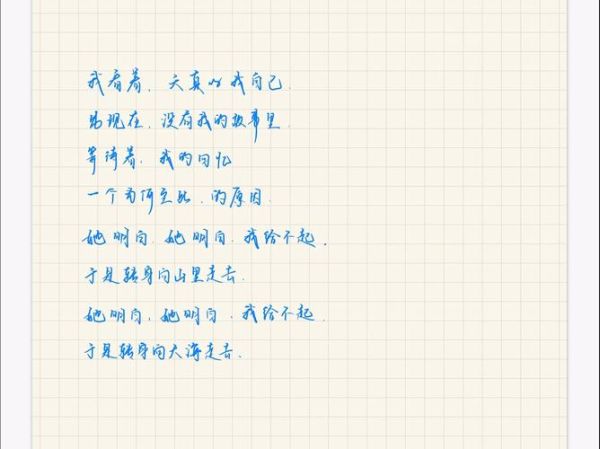 我看着，天真的我自己
出现在，没有我的故事里
等待着，我的回忆
一个为何至此，的原因
她明白，她明白，我给不起，
于是转身向山里走去
她明白，她明白，我给不起
于是转身向大海走去，